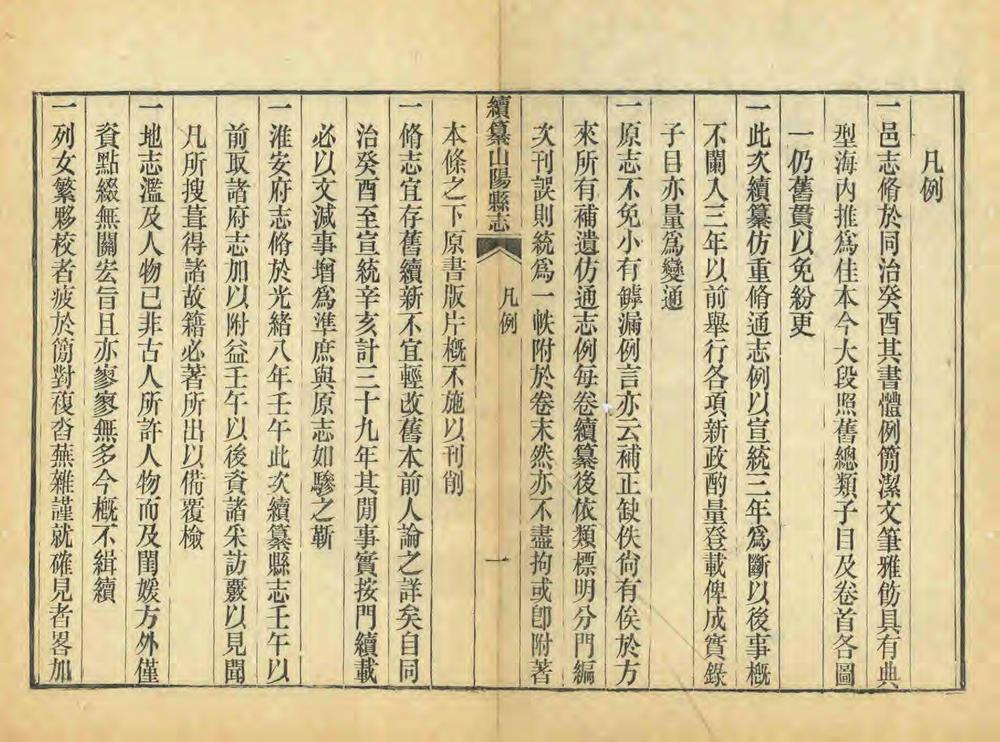 凡例
一邑志脩於同治癸酉其書體例簡潔文筆雅飭具有典
型海内推爲佳本今大段照舊總類子目及卷首各圖
一仍舊貫以免紛更
一此次續纂仿重脩通志例以宣統三年爲斷以後事概
不闌入三年以前舉行各項新政酌量登載俾成實錄
子目亦量爲變通
一原志不免小有罅漏例言亦云補正缺佚尙有俟於方
來所有補遺仿通志例每卷續纂後依類標明分門編
次刊誤則統爲一帙附於卷末然亦不盡拘或卽附著
續纂山陽縣志
凡例
一
本條之下原書版片概不施以刊削
一脩志宜存舊續新不宜輕改舊本前人論之詳矣自同
治癸酉至宣統辛亥計三十九年其閒事實按門續載
必以文減事增爲準庶與原志如驂之靳
一淮安府志脩於光緒八年壬午此次續纂縣志壬午以
前取諸府志加以附益壬午以後資諸采訪覈以見聞
凡所搜葺得諸故籍必著所出以備覆檢
一地志濫及人物已非古人所許人物而及閨媛方外僅
資點綴無關宏旨且亦寥寥無多今概不緝續
一列女繁夥校者疲於簡對複沓蕪雜謹就確見者畧加